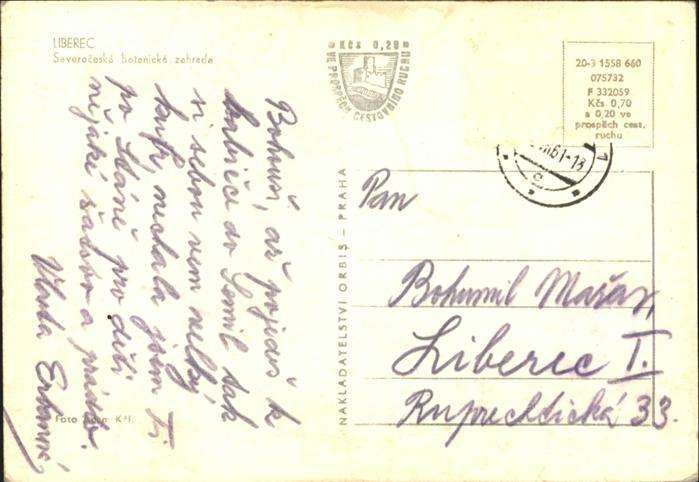 LIBEREC
Severočeská botanická zahrada
Kčs 0,20
VE PROSPĚCH CESTOVNÍHO RUCHU
20-3 1558 660
075732
F 332059
Kčs 0,70
a 0,20 ve
prospěch cest.
ruchu
61-18
Bohuši, až pojedeš k
babičce do Semil tak
si sebou vem velký
kufr nechala jsem Ti
po Haně pro děti
nějaké šatstvo a prádlo.
Vlasta
Foto
NAKLADATELSTVÍ ORBIS – PRAHA
Pan
Bohumil
Liberec I.
Ruprechtická 33.